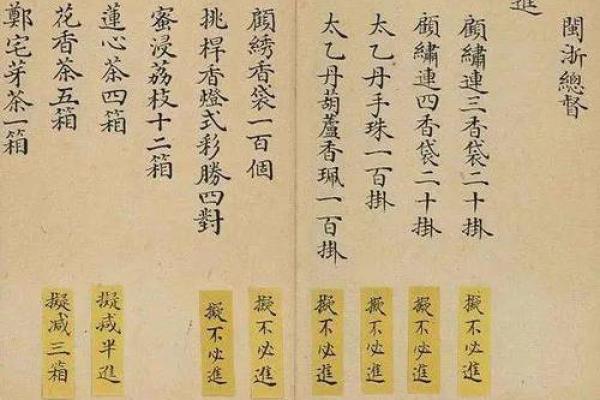 閩浙總督
進
顧繡連三香袋二十掛
擬不必進
顧繡連四香袋二十掛
擬不必進
太乙丹手珠一百掛
擬不必進
太乙丹葫蘆香珮一百掛
擬不必進
顧綉香袋一百個
擬不必進
挑桿香燈式彩勝四對
擬不必進
蜜浸荔枝十二箱
蓮心茶四箱
擬减半進
花香茶五箱
擬减三箱
鄭宅芽茶一箱